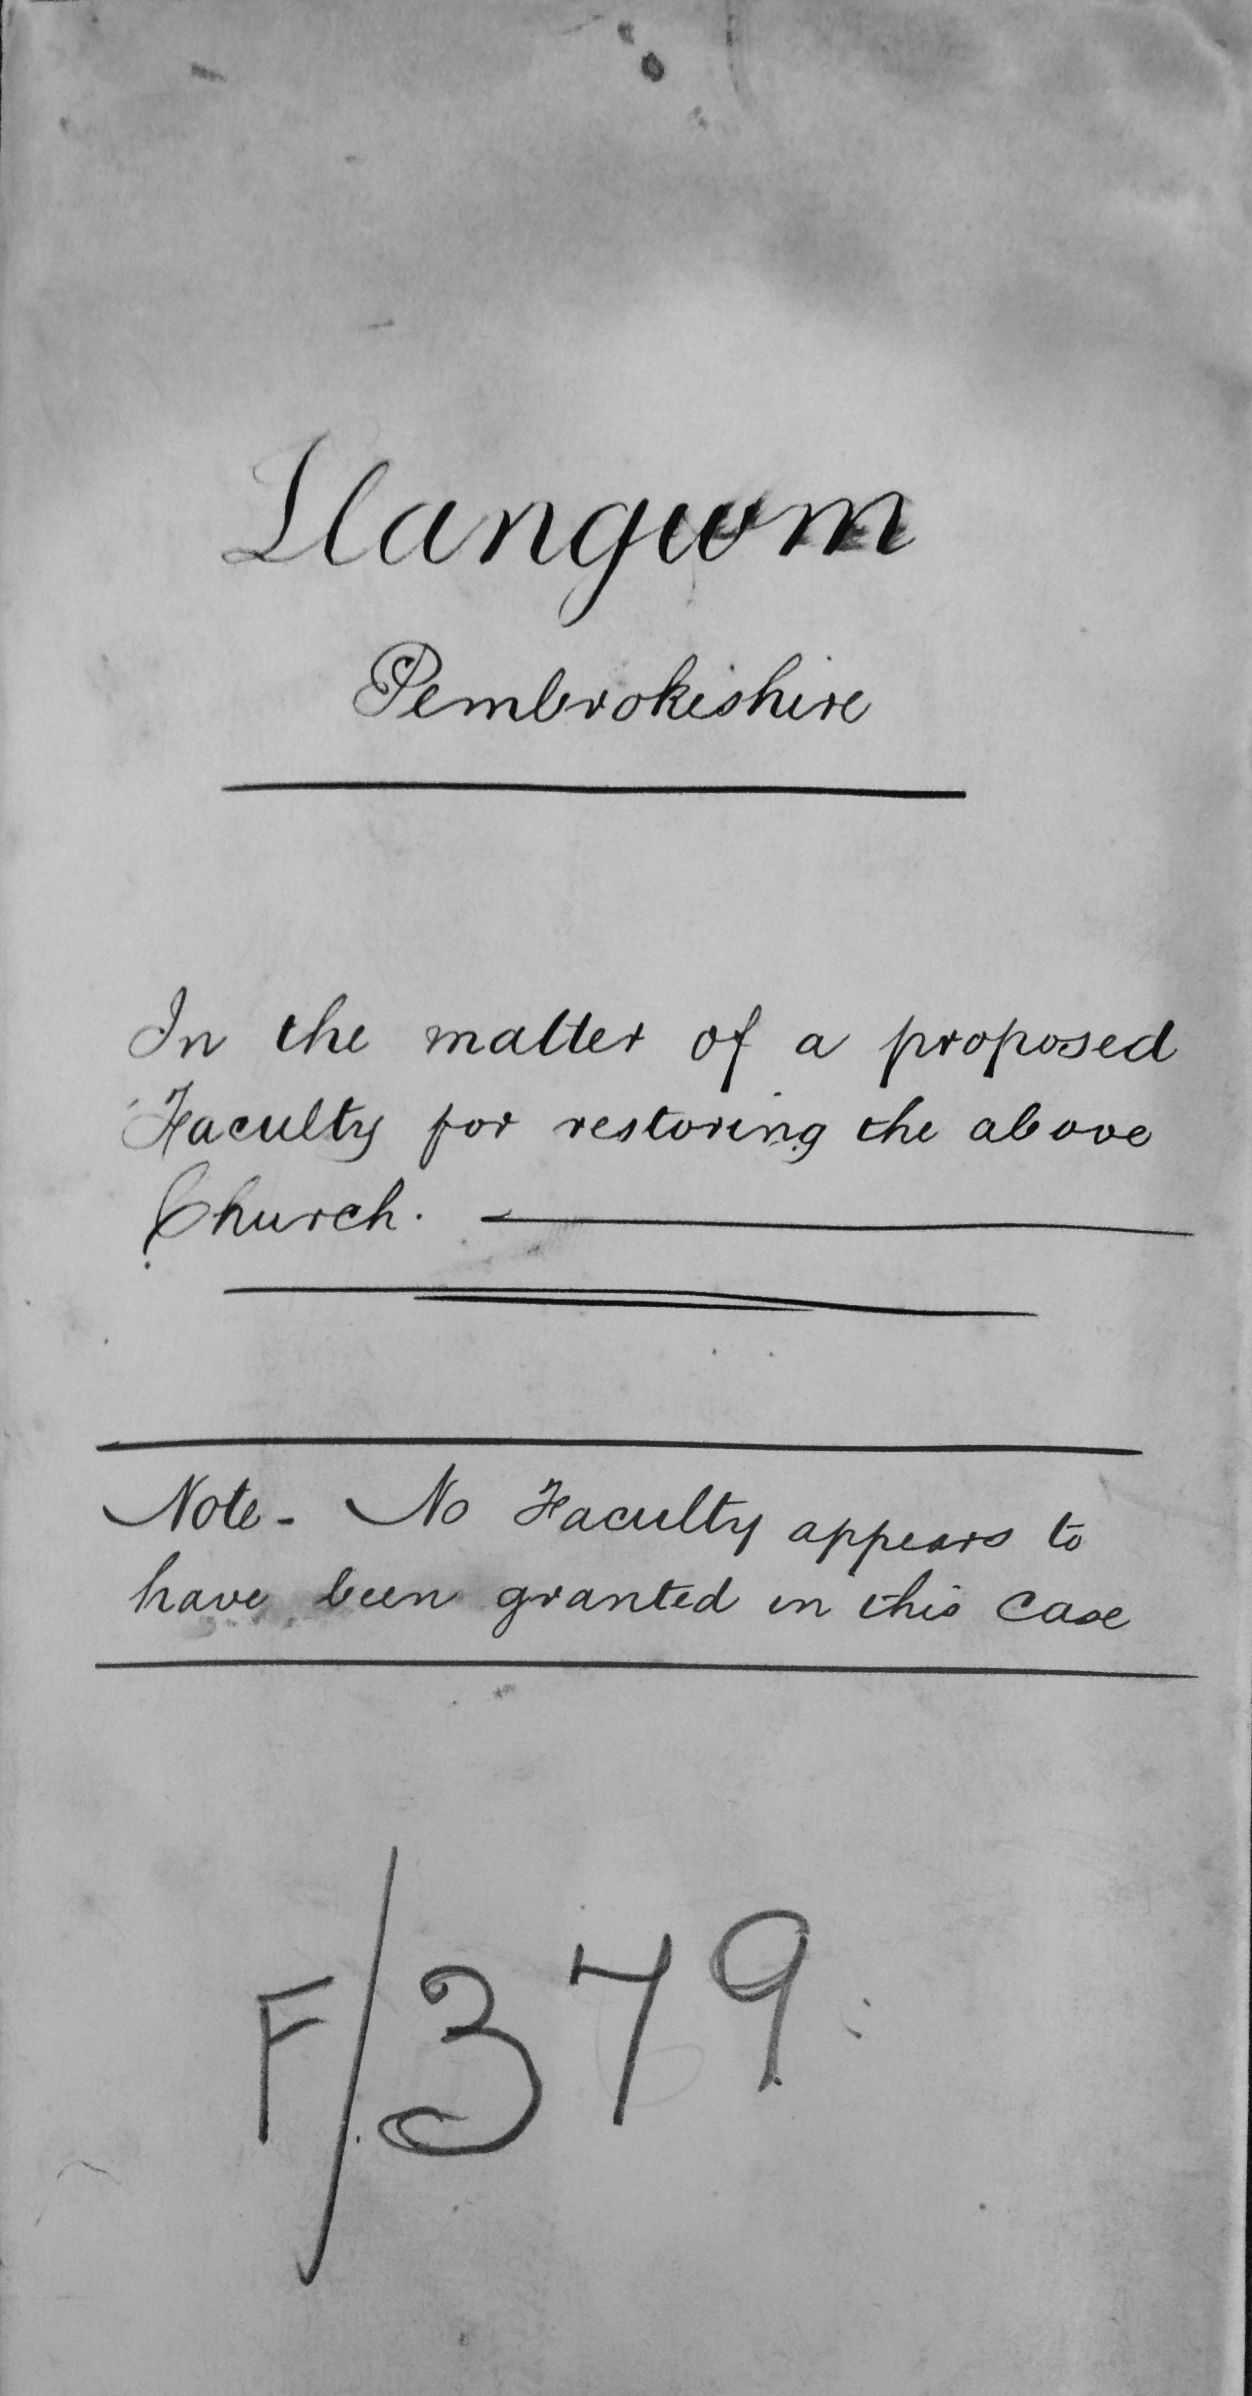 Llangwm
Pembrokeshire
In the matter of a proposed
Faculty for restoring the above
Church.
Note - No Faculty appears to
have been granted in this case
F/379